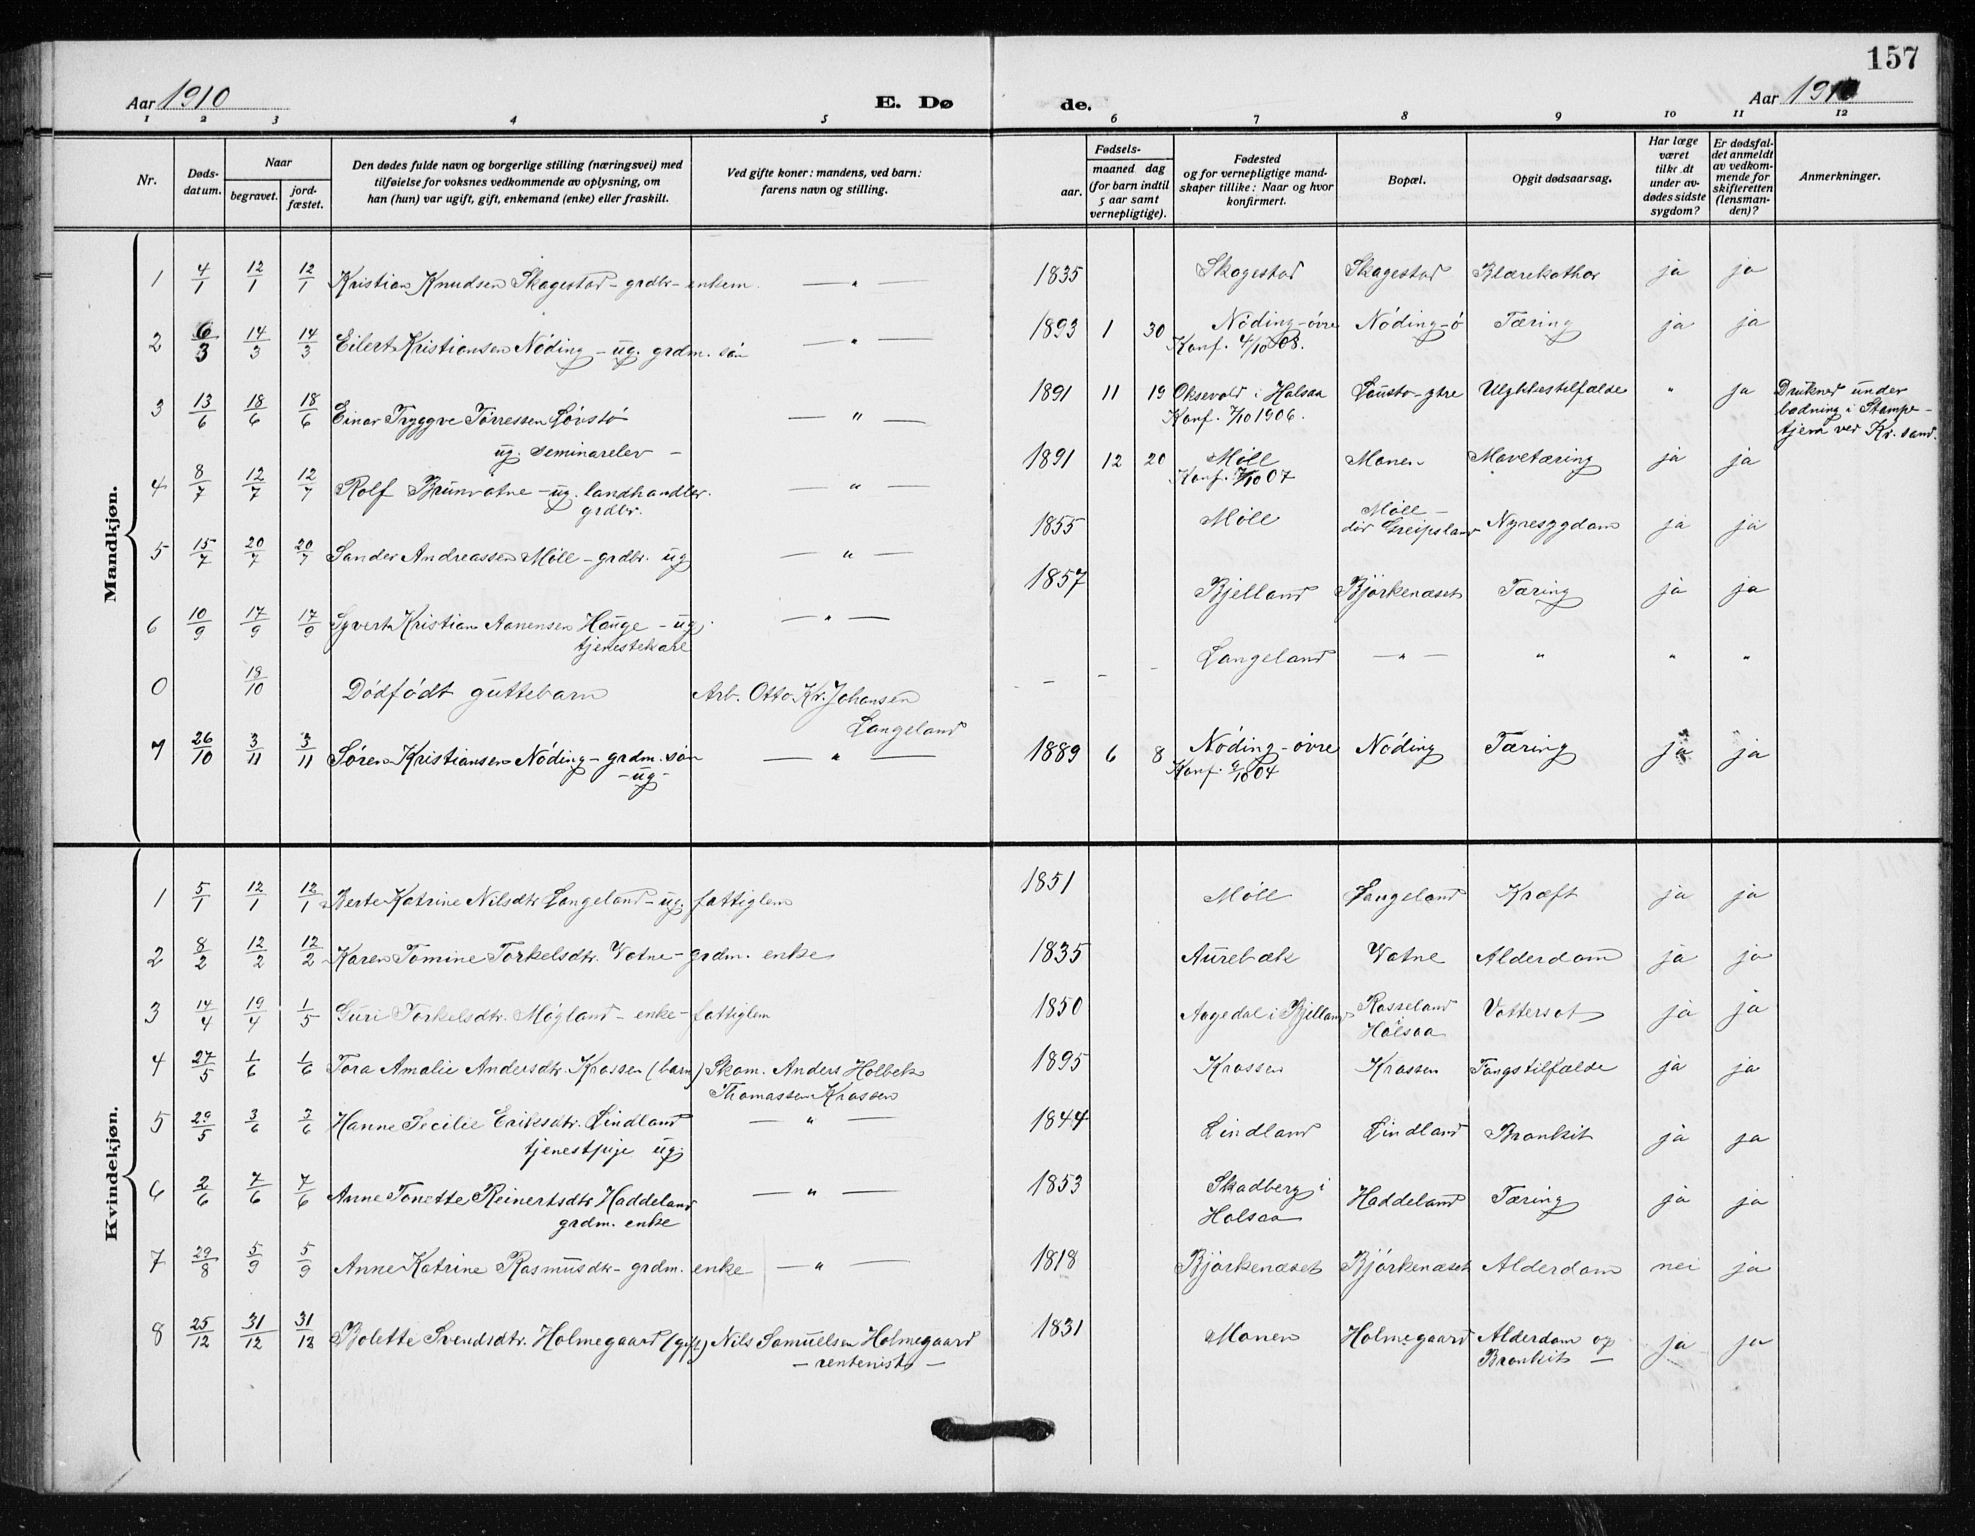 157
Aar 1910
E. Dø
de.
Aar 1910
1 2 3 4 5 6 7 8 9 10 11 12
Nr.
Døds-
datum.
Naar
begravet.
jord-
fæstet.
Den dødes fulde navn og borgerlige stilling (næringsvei) med
tilføielse for voksnes vedkommende av oplysning, om
han (hun) var ugift, gift, enkemand (enke) eller fraskilt.
Ved gifte koner: mandens, ved barn:
farens navn og stilling.
Fødsels-
aar.
maaned dag
(for barn indtil
5 aar samt
vernepligtige).
Fødested
og for vernepligtige mand-
skaper tillike: Naar og hvor
konfirmert.
Bopæl.
Opgit dødsaarsag.
Har læge
været
tilkaldt
under av-
dødes sidste
sygdom?
Er dødsfal-
det anmeldt
av vedkom-
mende for
skifteretten
(lensman-
den)?
Anmerkninger.
Mandkjøn.
1 4/1 12/1 12/1 Kristian Knudsen Skagestad - grdbr - enkem. — " — 1835 Skagestad Skagestad Blærekathar ja ja
2 6/3 14/3 14/3 Eilert Kristiansen Nöding - ug. grdm. sön — " — 1893 1 30 Nöding - övre Nöding - ö Tæring ja ja
Konf. 4/10 08.
3 13/6 18/6 18/6 Einar Tryggve Tørressen Løvstö — " — 1891 11 19 Oksevold i Halsaa Laustö - ytre Ulykkestilfælde " ja Druknet under
ug. seminarelev - Konf. 7/10 1906. badning i Stampe-
tjern ved Kr. sand.
4 8/7 12/7 12/7 Rolf Brunvatne - ug. landhandler. — " — 1891 12 20 Möll Monen Mavetæring ja ja
grdbr. Konf. 7/10 07
5 15/7 20/7 20/7 Sander Andreassen Möll - grdbr. ug — " — 1855 Möll Möll - Nyresygdom ja ja
Greipsland
6 10/9 17/9 17/9 Syvert Kristian Aanensen Hauge - ug. — " — 1857 Bjelland Björkenæset Tæring ja ja
tjenestekarl
0 18/10 Dödfödt guttebarn Arb. Otto Kr. Johansen - - - Langeland — " — " " "
Langeland
7 26/10 3/11 3/11 Sören Kristiansen Nöding - grdm. sön — " — 1889 6 8 Nöding - övre Nöding Tæring ja ja
- ug - Konf. 9/10 04
Kvindekjøn.
1 5/1 12/1 12/1 Berte Katrine Nilsdtr. Langeland - ug. fattiglem 1851 Möll Langeland Kræft ja ja
2 8/2 12/2 12/2 Karen Tomine Torkelsdtr. Vatne - grdm. enke 1835 Aurebæk Vatne Alderdom ja ja
3 14/4 19/4 1/5 Guri Torkelsdtr. Møgland - enke - fattiglem 1850 Aagedal i Bjelland Rosseland Vattersot ja ja
Halsaa
4 27/5 1/6 1/6 Tora Amalie Andersdtr. Krossen (barn) Skom. Anders Holbek 1895 Krossen Krossen Tangstilfælde ja ja
Thomassen Krossen
5 29/5 3/6 3/6 Hanne Secilie Eriksdtr. Lindland — " — 1844 Lindland Lindland Bronkit ja ja
tjenestpige ug.
6 2/6 7/6 7/6 Anne Tonette Reinertsdtr. Haddeland — " — 1853 Skadberg i Haddeland Tæring ja ja
grdm. enke Halsaa
7 29/8 5/9 5/9 Anne Katrine Rasmusdtr - grdm. enke — " — 1818 Björkenæset Björkenæset Alderdom nei ja
8 25/12 31/12 31/12 Bolette Svendsdtr. Holmegaard (gift) Nils Samuelsen Holmegaard 1831 Monen Holmegaard Alderdom og ja ja
- rentenist - Bronkit